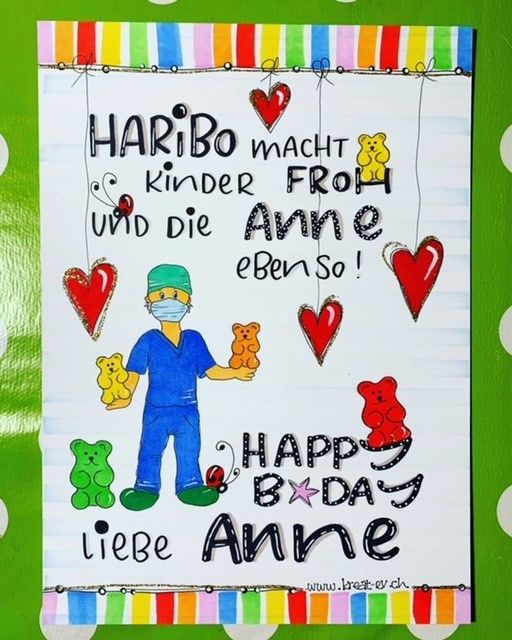 HARiBO MACHT
KiNDER FROH
UND DiE ANNE
EBENSO!
HAPPY
B DAY
LiEBE ANNE
www.kreat-ev.ch